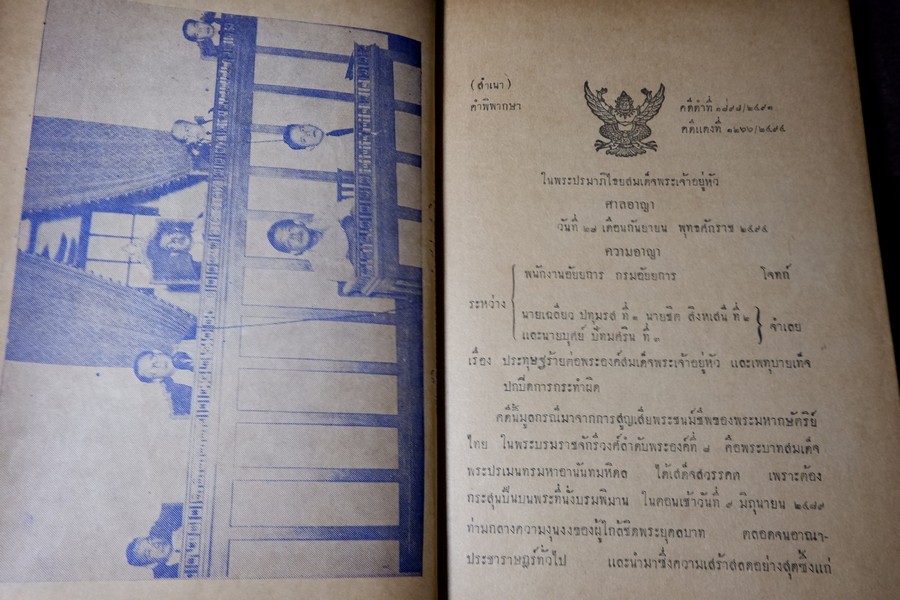 (สำเนา)
คำพิพากษา
คดีดำที่ ๑๘๙๘/๒๔๙๑
คดีแดงที่ ๑๒๖๖/๒๔๙๔
ในพระปรมาภิไธยสมเด็จพระเจ้าอยู่หัว
ศาลอาญา
วันที่ ๒๗ เดือนกันยายน พุทธศักราช ๒๔๙๔
ความอาญา
ระหว่าง
พนักงานอัยยการ กรมอัยยการ โจทก์
นายเฉลียว ปทุมรส ที่ ๑ นายชิต สิงหเสนี ที่ ๒
และนายบุศย์ ปัทมศริน ที่ ๓
จำเลย
เรื่อง ประทุษฐร้ายต่อพระองค์สมเด็จพระเจ้าอยู่หัว และเพทุบายเท็จ
ปกปิดการกระทำผิด
คดีนี้มูลกรณีมาจากการสูญเสียพระชนม์ชีพของพระมหากษัตริย์
ไทย ในพระบรมราชจักรีวงศ์ลำดับพระองค์ที่ ๘ คือพระบาทสมเด็จ
พระปรเมนทรมหาอานันทมหิดล ได้เสด็จสวรรคต เพราะต้อง
กระสุนปืนบนพระที่นั่งบรมพิมาน ในตอนเช้าวันที่ ๙ มิถุนายน ๒๔๘๙
ท่ามกลางความงุนงงของผู้ใกล้ชิดพระยุคลบาท ตลอดจนอาณา-
ประชาราษฎร์ทั่วไป และนำมาซึ่งความเศร้าสลดอย่างสุดซึ้งแก่